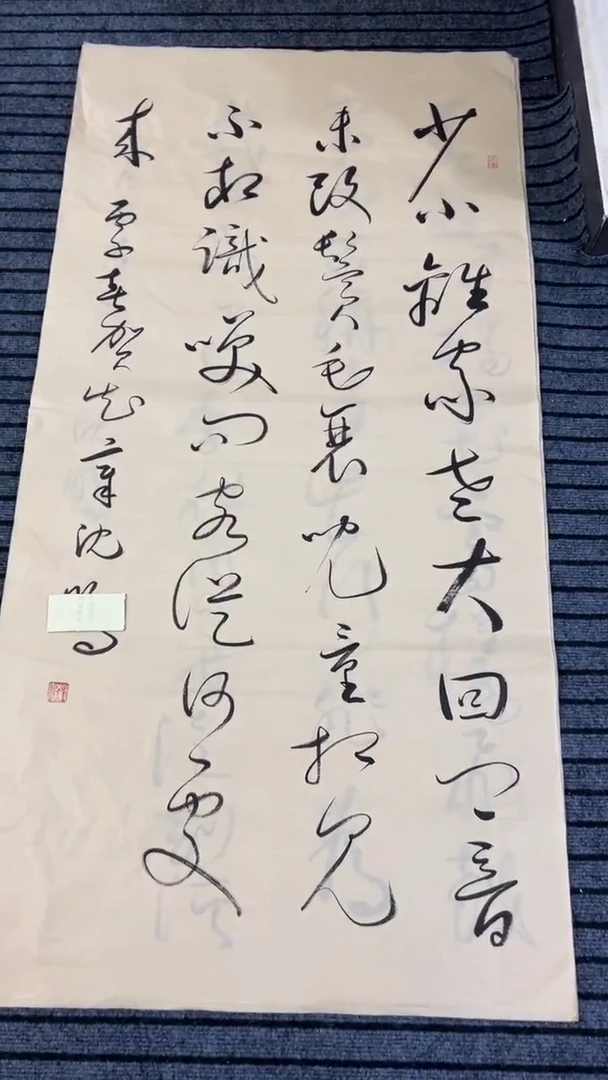 少小離家老大回鄉音
未改鬢毛衰兒童相見
不相識咲問客從何處
來 賀知章沈